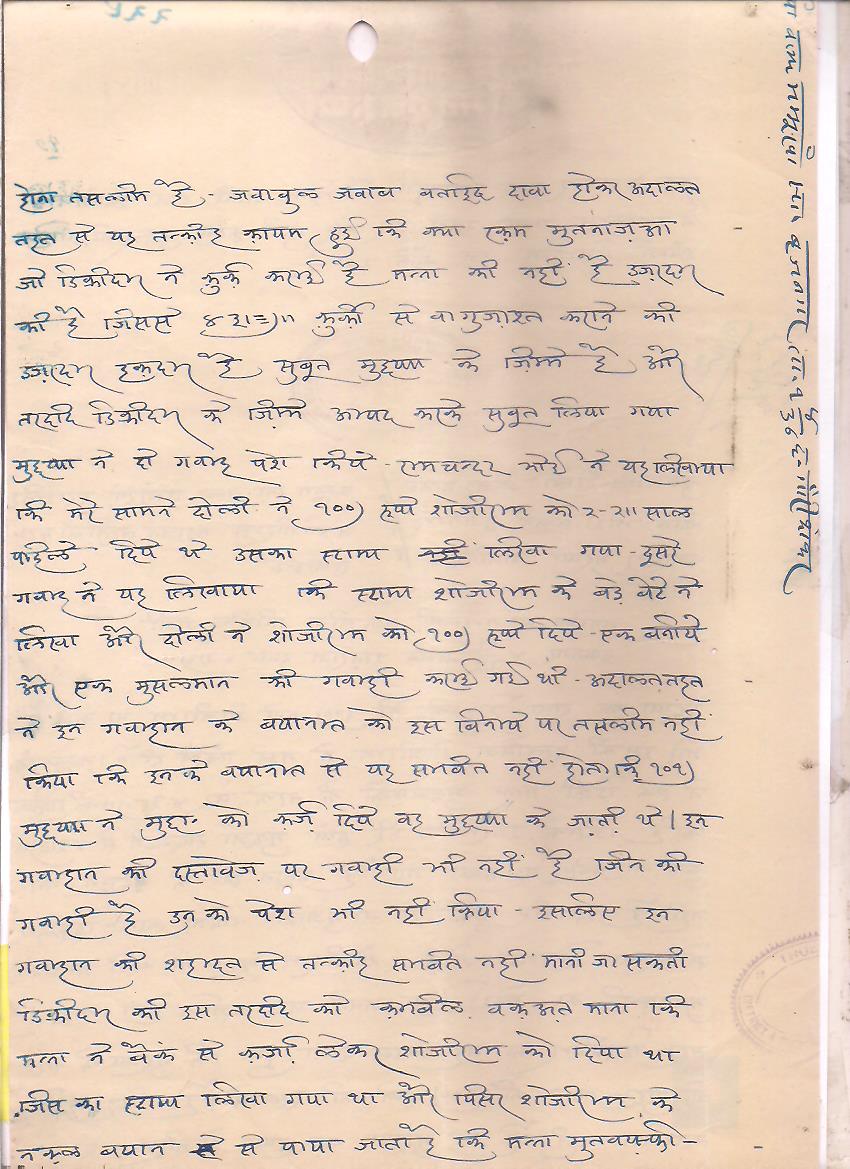 होना तसलीम है - जवाबुल जवाब बताईद दावा होकर अदालत
तहत से यह तन्कीह क़ायम हुई कि क्या रक़म मुतनाज़आ
जो डिक्रीदार ने क़ुर्क़ कराई है मन्ना की नहीं है उज़रदार
की है जिससे ४२।=)॥ क़ुर्क़ी से वागुज़ाश्त कराने का
उज़रदार हक़दार है सुबूत मुद्दय्या के ज़िम्मे है और
तरदीद डिक्रीदार के ज़िम्मे आयद करके सुबूत लिया गया
मुद्दय्या ने दो गवाह पेश किये - रामचन्दर भोई ने यह लिखाया
कि मेरे सामने दोली ने १००) रुपये शोजीराम को २-२॥ साल
पहिले दिये थे उसका स्टाम्प लिखा गया - दूसरे
गवाह ने यह लिखाया कि स्टाम्प शोजीराम के बड़े बेटे ने
लिखा और दोली ने शोजीराम को १००) रुपये दिये - एक बनीये
और एक मुसलमान की गवाही कराई गई थी - अदालत तहत
ने इन गवाहान के बयानात को इस बिनाय पर तसलीम नहीं
किया कि इनके बयानात से यह साबीत नहीं होता कि १०१)
मुद्दय्या ने मुद्दा॰ को क़र्ज़ दिये वह मुद्दय्या के ज़ाती थे। इन
गवाहान की दस्तावेज़ पर गवाही भी नहीं है जिन की
गवाही है उन को पेश भी नहीं किया - इसलिए इन
गवाहान की शहादत से तन्कीह साबीत नहीं मानी जा सकती
डिक्रीदार की इस तरदीद को क़ाबील वक़अत माना कि
मन्ना ने बैंक से क़र्ज़ा लेकर शोजीराम को दिया था
जिस का स्टाम्प लिखा गया था और पिसर शोजीराम के
नक़ल बयान से पाया जाता है कि मन्ना मुतवफ़्फ़ी -